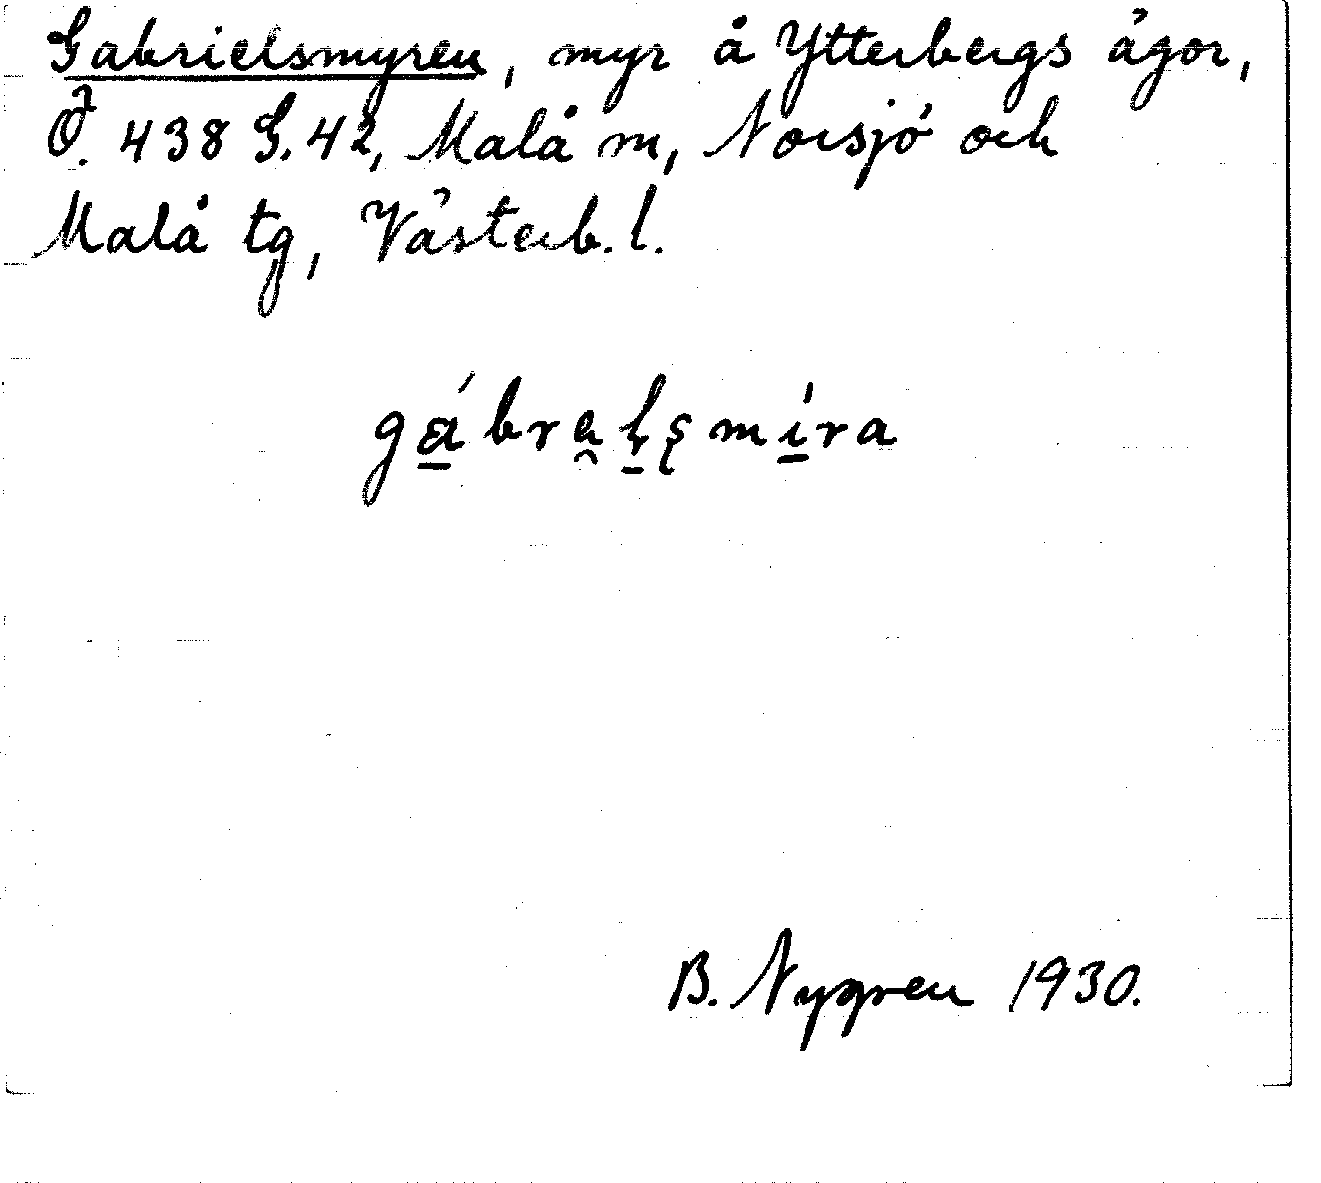 Gabrielsmyren, myr å Ytterbergs ägor,
Ö. 438 G. 42, Malå m, Norsjö och
Malå tg, Västerb. l.
B. Nygren 1930.